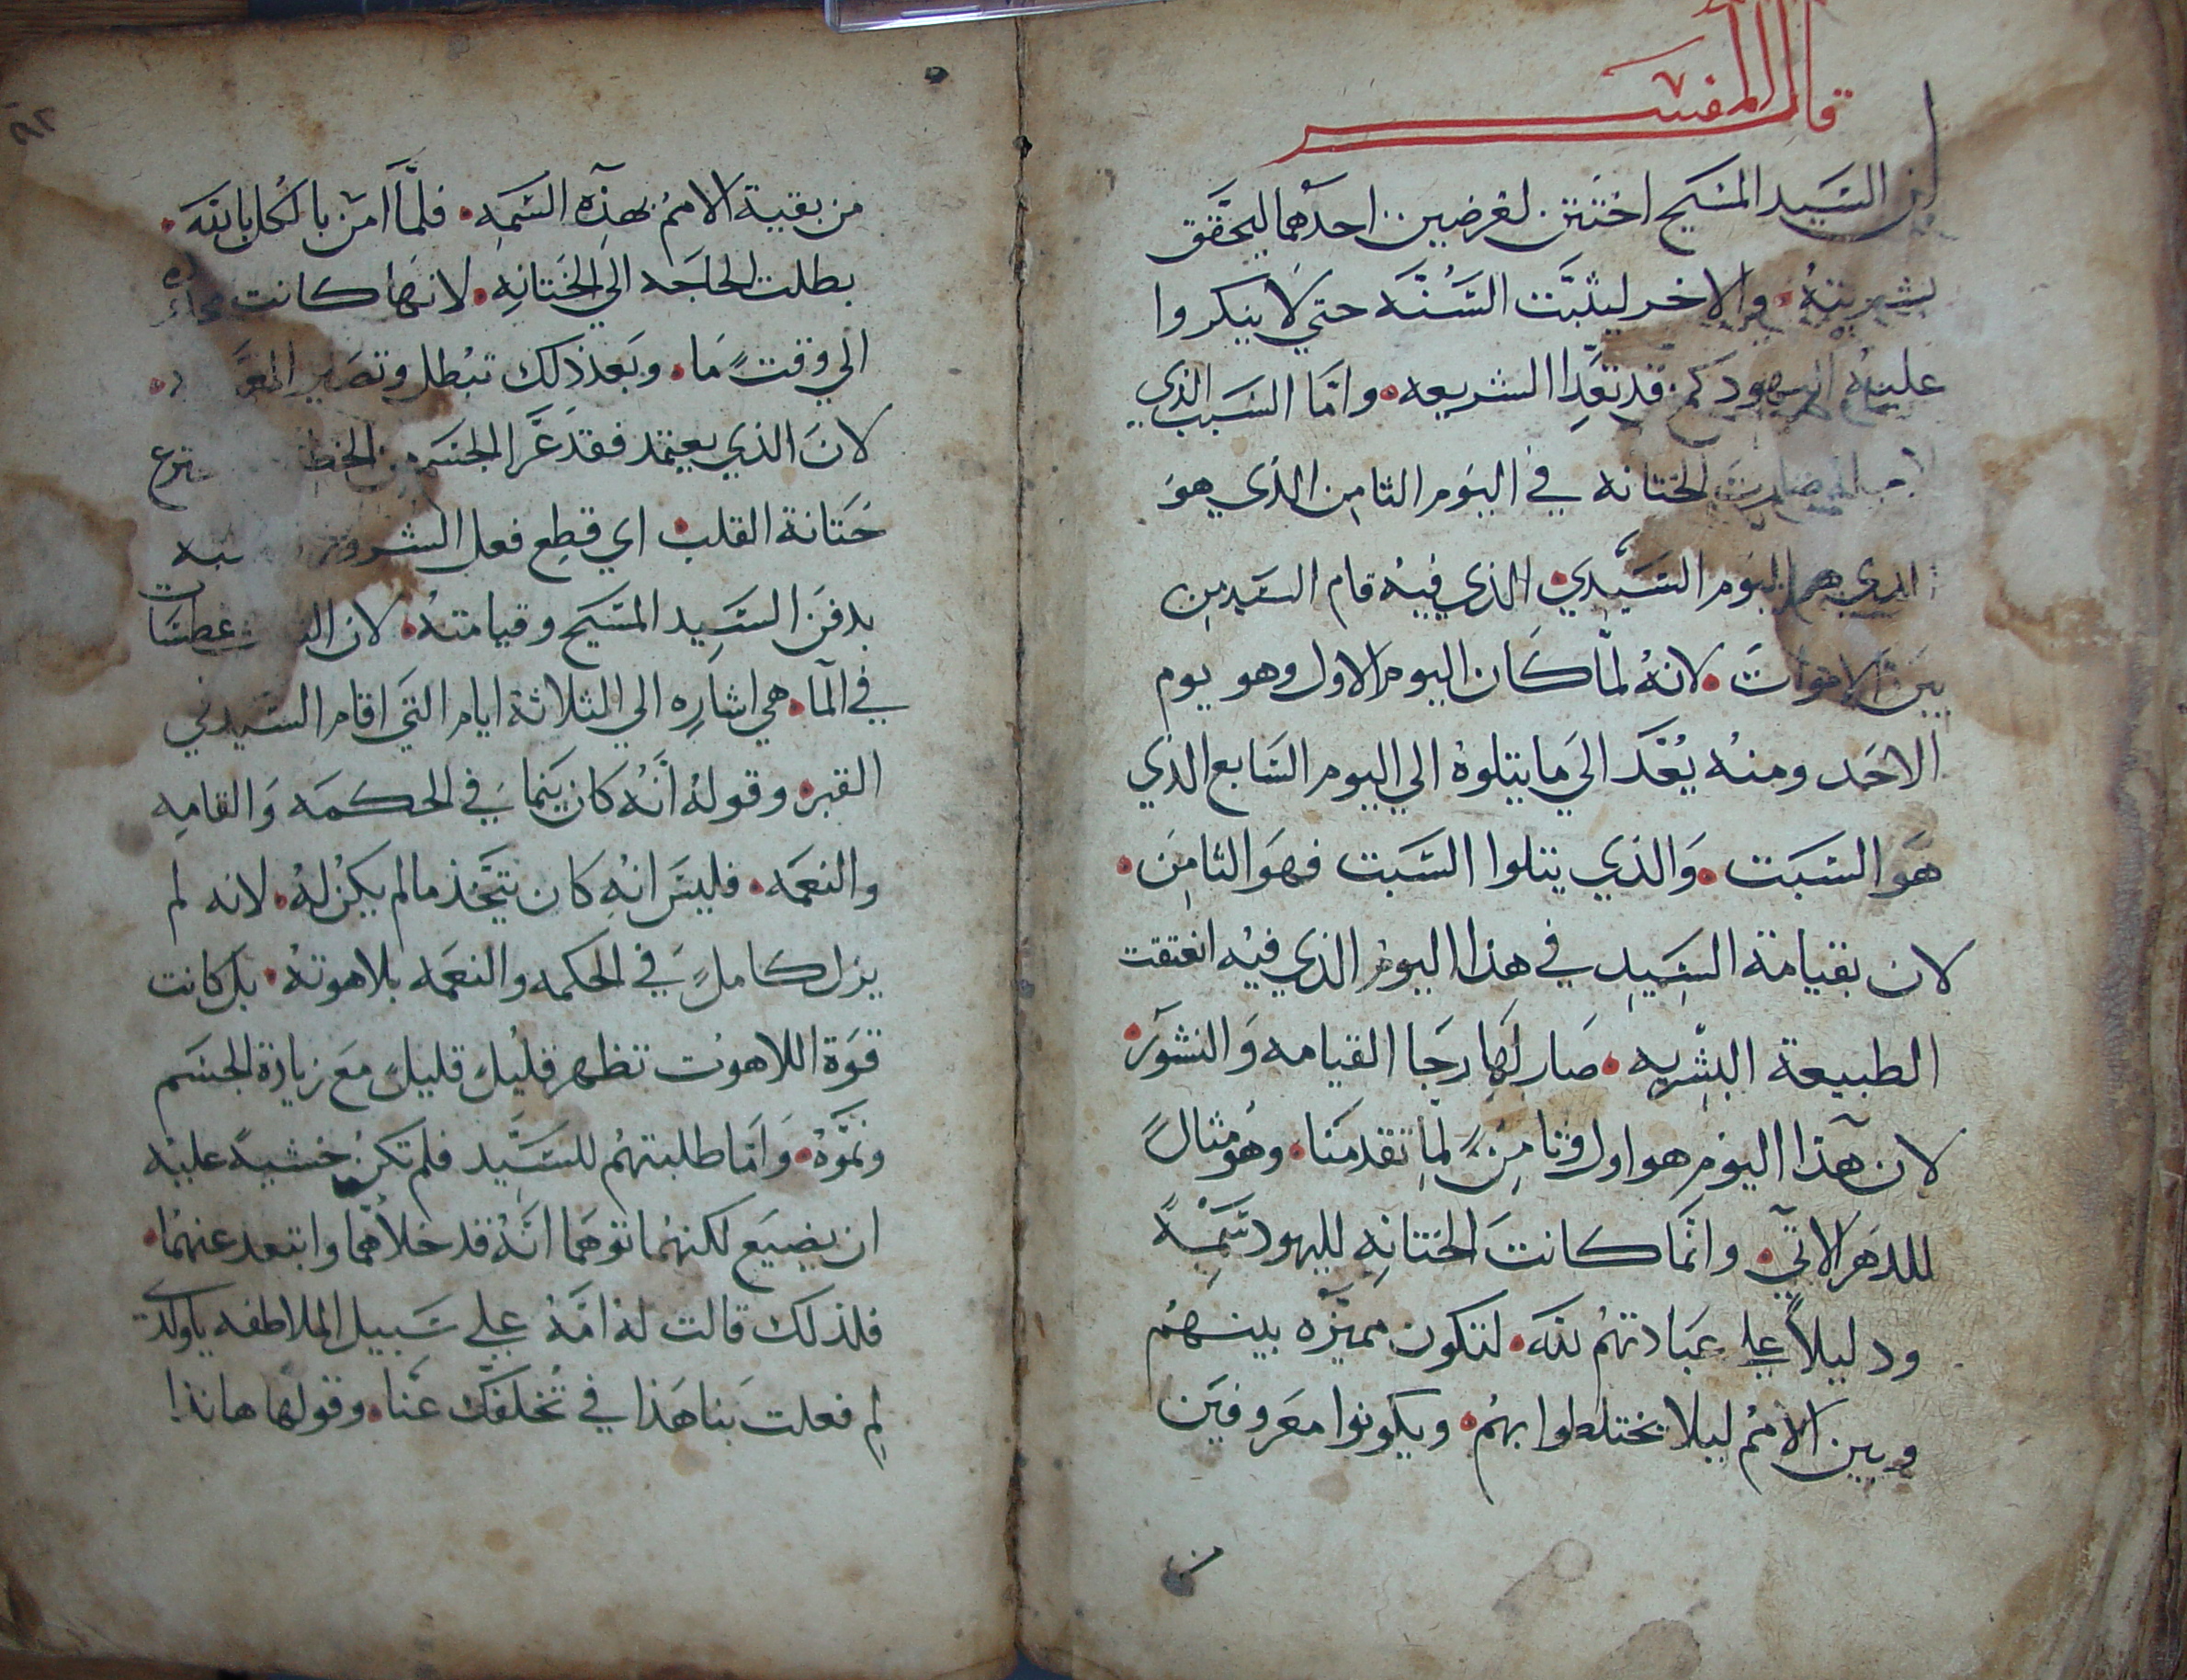 قال المفسر
ان السيد المسيح اختتن لغرضين احدهما ليتحقق
بشريته والاخر ليثبت السنه حتي لا ينكروا
عليه اليهود كمن قد تعدا الشريعه واما السبب الذي
صارت الختانه في اليوم الثامن الذي هو
الذي هو اليوم السيدي الذي فيه قام السيد من
بين الاموات لانه لما كان اليوم الاول وهو يوم
الاحد ومنه يعد الي ما يتلوه الي اليوم السابع الذي
هو السبت والذي يتلوا السبت فهو الثامن
لان بقيامة السيد في هذا اليوم الذي فيه انعتقت
الطبيعة البشريه صار لها رجا القيامه والنشور
لان هذا اليوم هو اول وثامن لما تقدمنا وهو مثال
للدهر الاتي وانما كانت الختانه لليهود سمة
ودليلاً علي عبادتهم لله لتكون مميزه بينهم
وبين الامم ليلا يختلطوا بهم ويكونوا معروفين
من بقية الامم بهذه السمه فلما آمن الكل بالله
بطلت الحاجه الي الختانه لانها كانت
الي وقت ما وبعد ذلك تبطل وتصير
لان الذي يعتمد فقد عرا الجسد من
ختانة القلب اي قطع فعل الشرور
بدفن السيد المسيح وقيامته لان غطسات
في الما هي اشاره الي الثلاثة ايام التي اقام السيد في
القبر وقوله انه كان ينما في الحكمه والقامه
والنعمه فليس انه كان يتخذ ما لم يكن له لانه لم
يزل كامل في الحكمه والنعمه بلاهوته بل كانت
قوة اللاهوت تظهر قليل قليل مع زيادة الجسم
ونموه واما طلبتهم للسيد فلم تكن خشية عليه
ان يضيع لكنهما توهما انه قد خلاهما وابتعد عنهما
فلذلك قالت له امه علي سبيل الملاطفه ياولدي
لم فعلت بنا هذا في تخلفك عنا وقولها هانذا